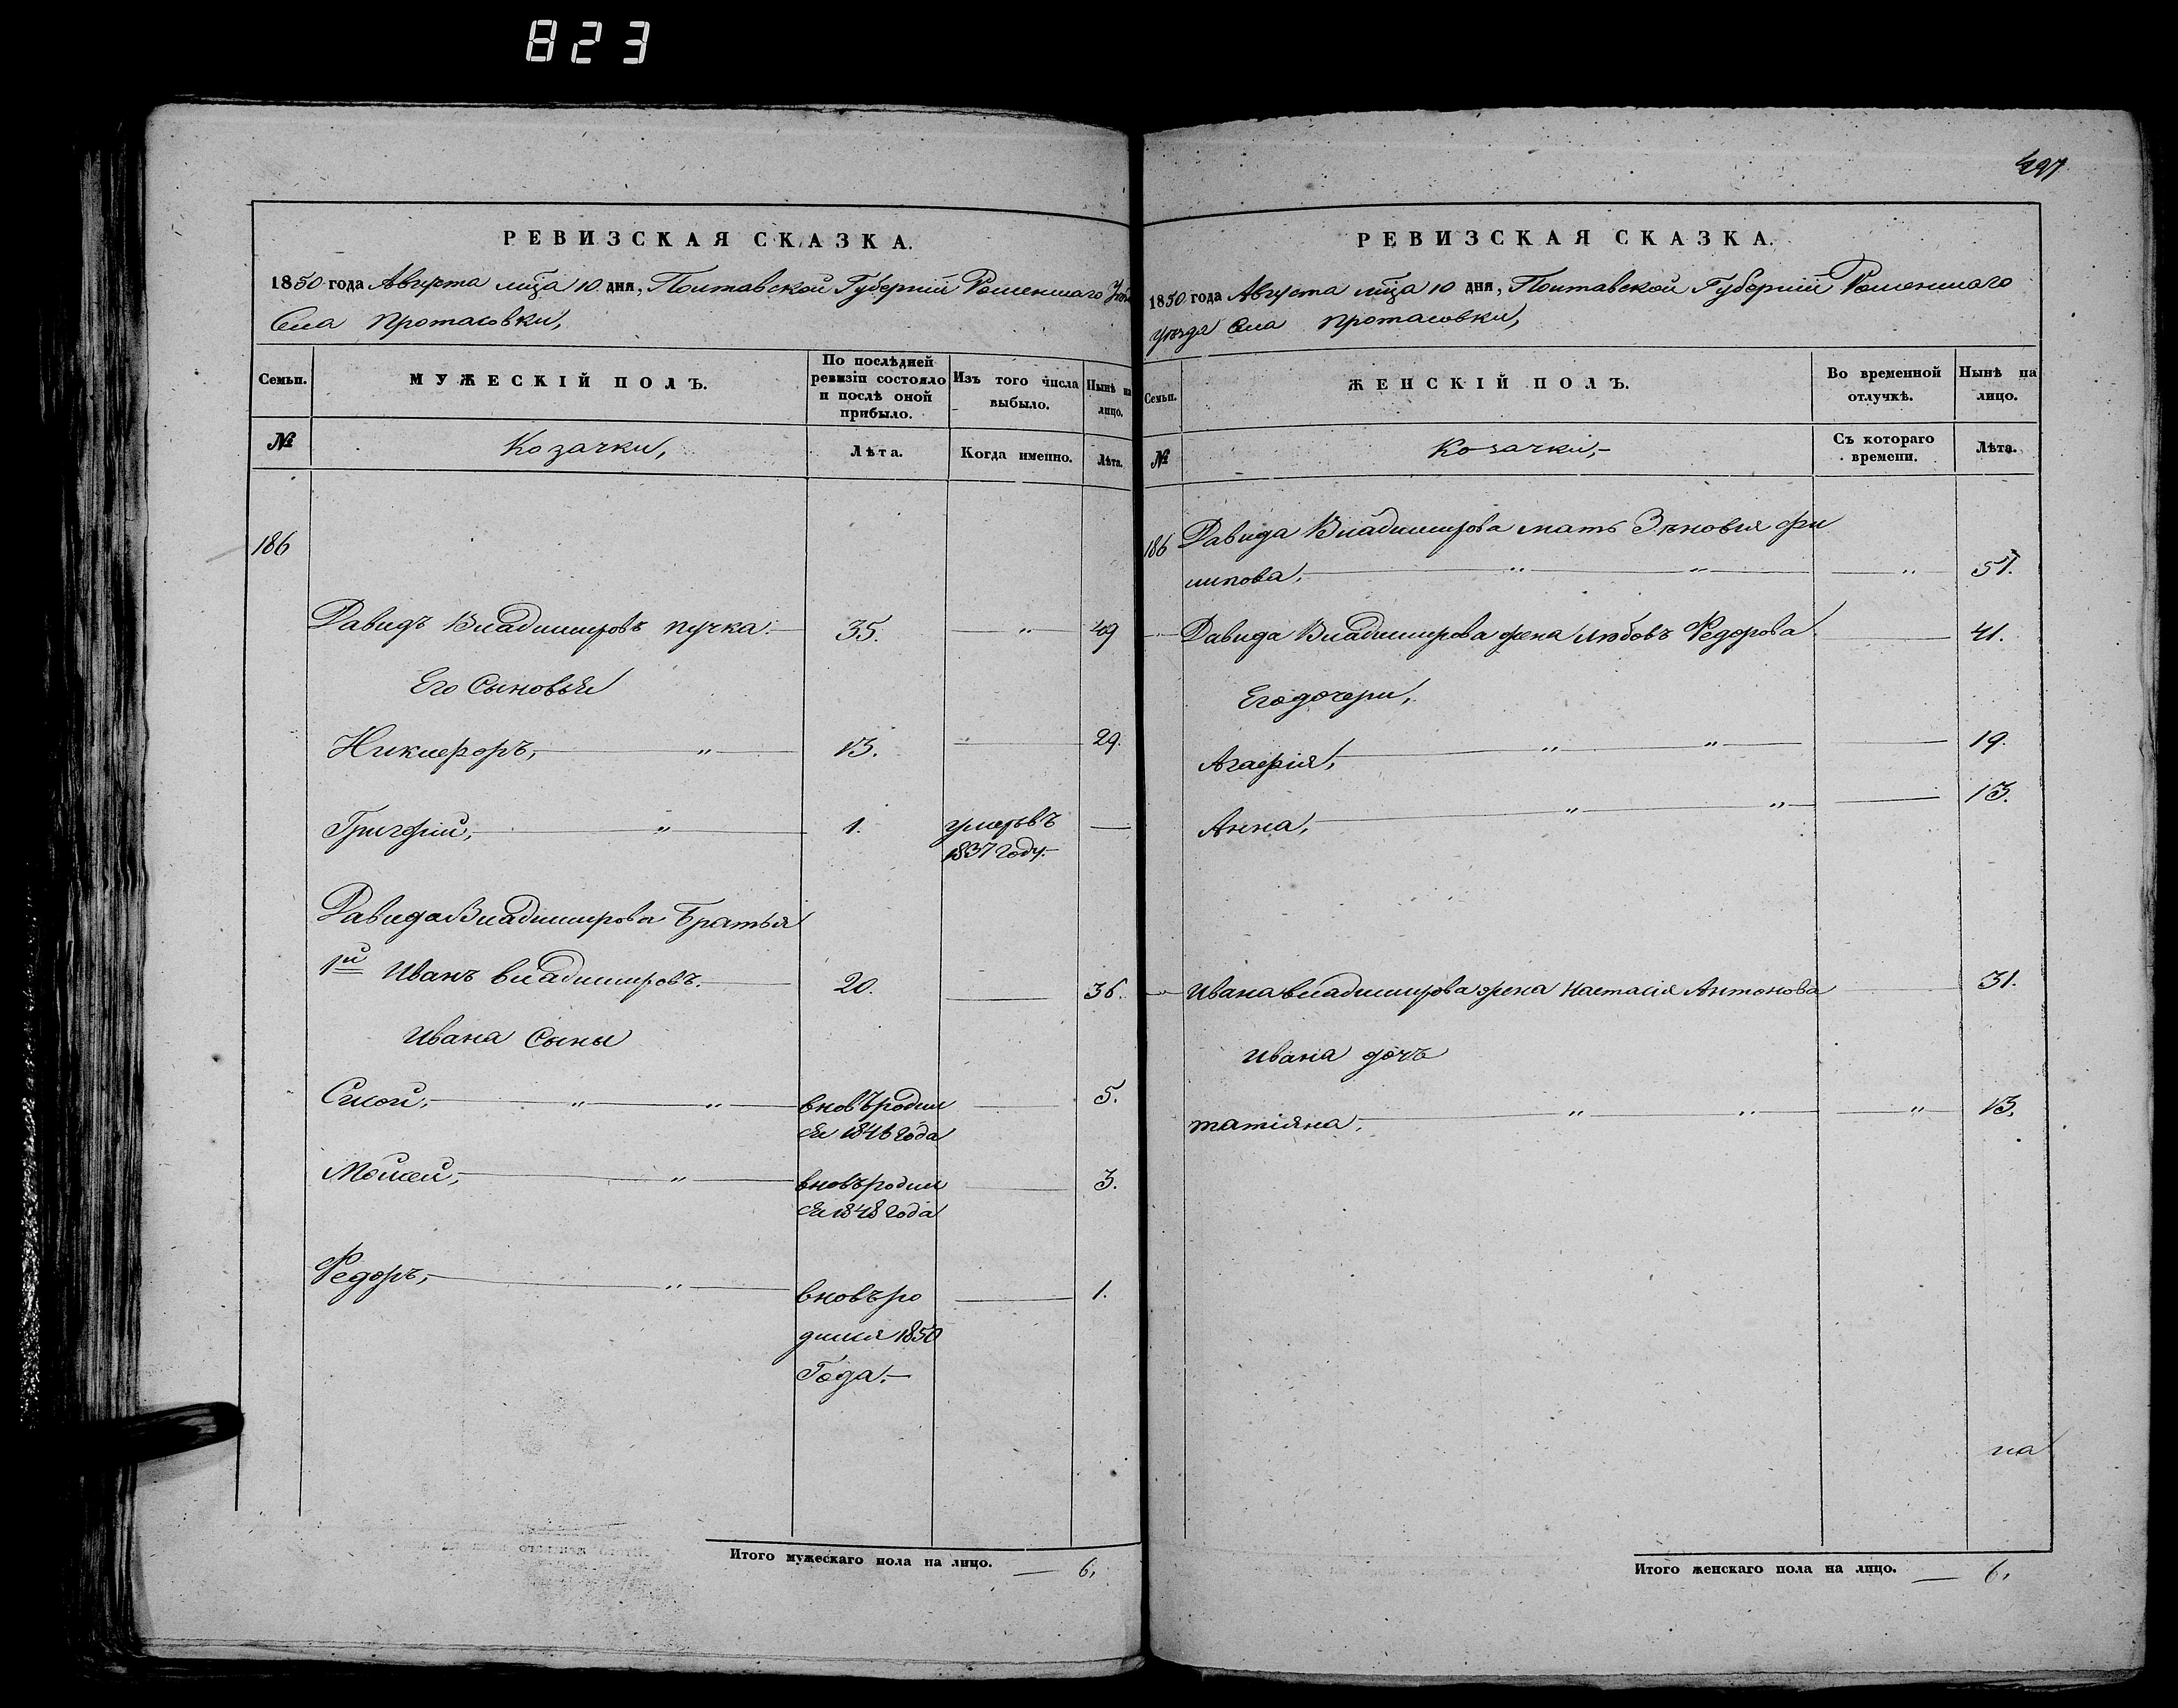 823
РЕВИЗСКАЯ СКАЗКА.
1850 года Августа мца 10 дня, Полтавской Губернии Роменского
Села Протасовки,
Семьи.
МУЖЕСКІЙ ПОЛЪ.
По послѣдней
ревизіи состояло
и послѣ оной
прибыло.
Изъ того числа
выбыло.
Нынѣ на
лицо.
№
Козачки,
Лѣта.
Когда именно.
Лѣта.
186
Давидъ Владимировъ пучка. 35. 49
Его Сыновья
Никифоръ, 13. 29.
Григорій, 1. умеръ въ
1837 году.
Давида Владимирова Братья
1й Иванъ Владимировъ. 20. 36.
Ивана Сыны
Сисой, вновъ родил 5.
ся 1846 года
Моисей, вновъ родил 3.
ся 1848 года
Федоръ, вновъ ро 1.
дился 1850
Года.
Итого мужескаго пола на лицо. 6.
497
РЕВИЗСКАЯ СКАЗКА.
1850 года Августа мца 10 дня, Полтавской Губерніи Роменского
уѣзда Села Протасовки,
Семьи.
ЖЕНСКІЙ ПОЛЪ.
Во временной
отлучкѣ.
Нынѣ на
лицо.
№
Козачки,
Съ котораго
времени.
Лѣта.
186 Давида Владимирова мать Зѣновія фи
липова, 51.
Давида Владимирова жена Любовъ Федорова 41.
Его дочери,
Агафія, 19.
Анна, 13.
Ивана Владимирова жена Настасія Антонова 31.
Ивана дочъ
татіяна, 13.
на
Итого женскаго пола на лицо. 6.